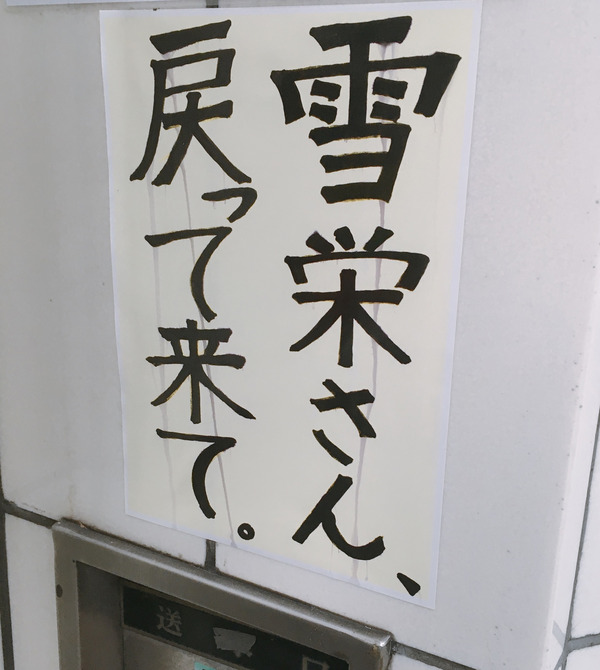 雪栄さん、
戻って来て。
送 口